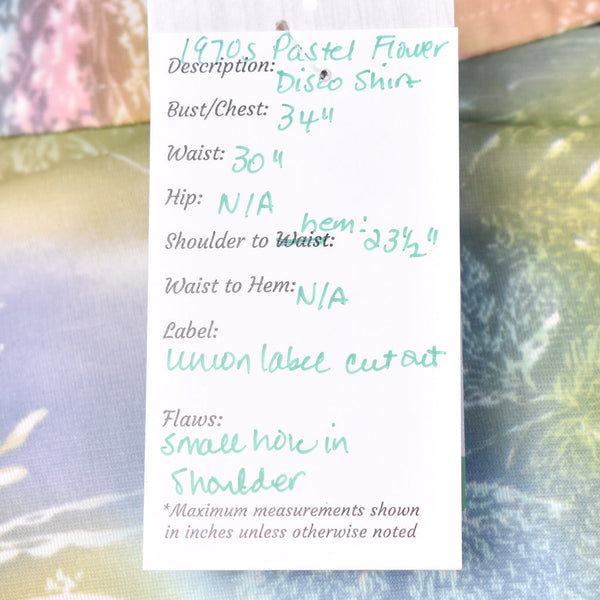 1970s Pastel Flower
Description: Disco Shirt
Bust/Chest: 34"
Waist: 30"
Hip: N/A
hem:
Shoulder to Waist: 23 1/2"
Waist to Hem: N/A
Label:
Union label cut out
Flaws:
Small hole in
Shoulder
*Maximum measurements shown
in inches unless otherwise noted